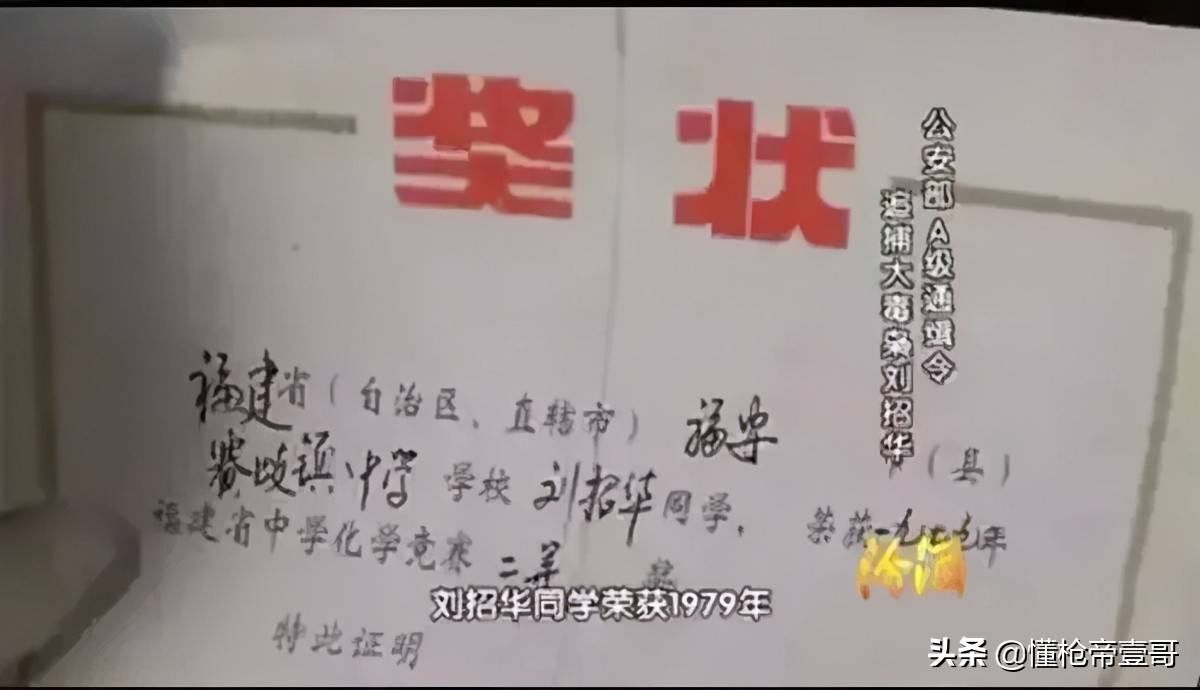 奖状
公安部A级通缉令
追捕大毒枭刘招华
福建省（自治区、直辖市）福安
（县）
赛岐镇中学 学校 刘招华同学，荣获一九七九年
福建省中学化学竞赛二等奖
刘招华同学荣获1979年
特此证明
头条 @懂枪帝壹哥